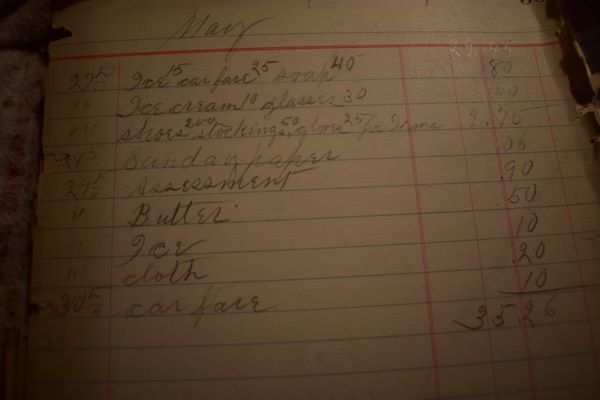 May
29 45
27th Ice 15 car fare 25 soap 40 80
" Ice cream 10 glasses 30 40
" shoes 200 stockings 50 gloves 25 for Irma 2.75
28th Sunday paper 06
29th Assessment 90
" Butter 50
" Ice 10
" cloth 20
30th car fare 10
35 26